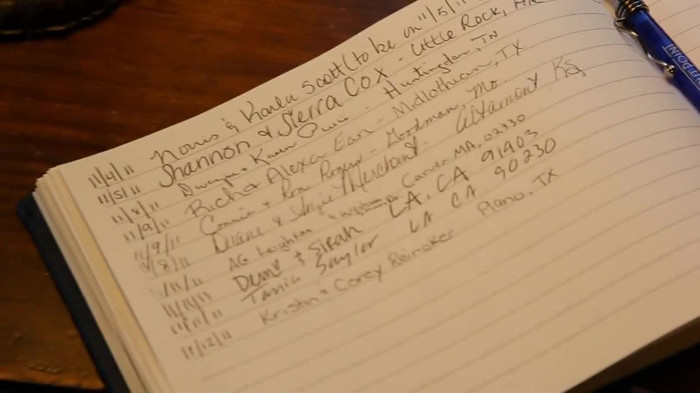 11/4/11 Norris & Karla Scott (to be on 11/5/11
11/5/11 Shannon & Sierra Cox - Little Rock, AR
Dwayne & Karen - Huntingdon, TN
11/8/11 Richa Alexa Earl - Midlothian, TX
11/9/11 Connie & Ron - Goodman, Mo.
11/9/11 Duane & Angie Merchant. Altamont KS
11/8/11 AG MA, 02330
11/11/11 Demi & Sirah LA, CA 91403
11/11/11 Tania Saylor LA CA 90230
11/12/11 Kristin & Corey Reinaker Plano, TX